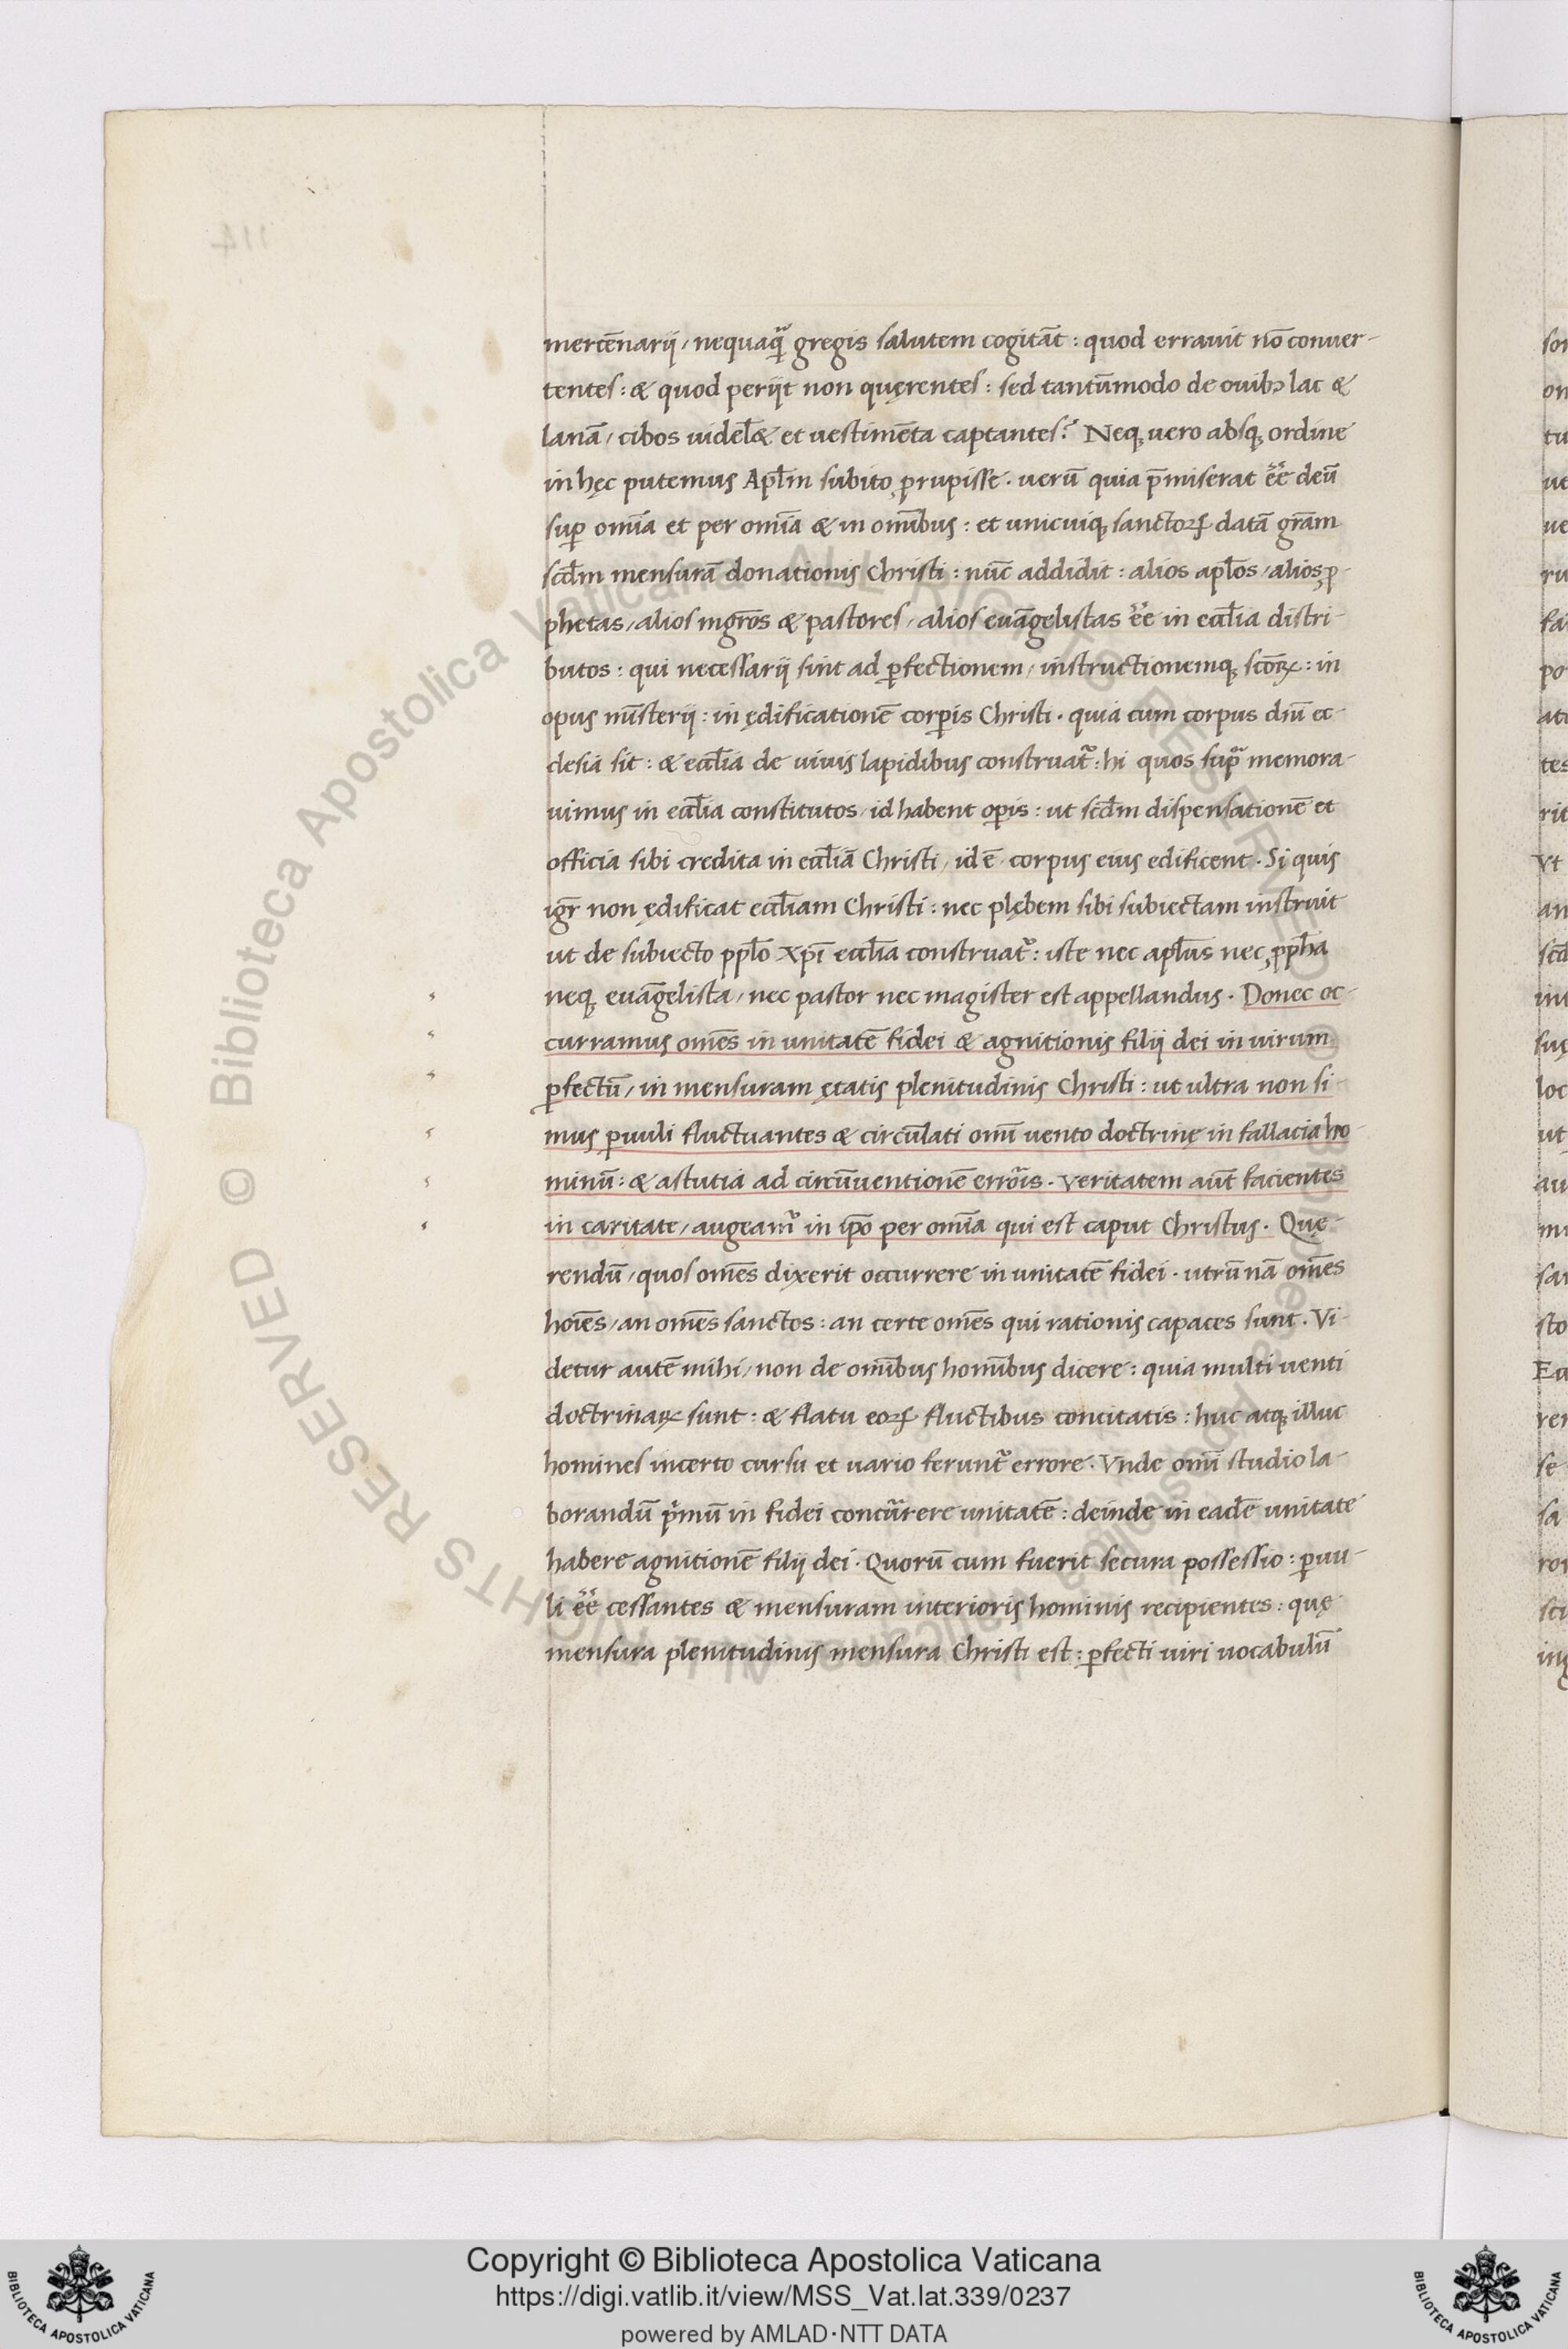 mercēnarij, nequaq̃ gregis salutem cogitāt: quod errauit nō conuer-
tentes: & quod perijt non quęrentes: sed tantūmodo de ouibꝫ lac &
lanā, cibos uidel& et uestimēta captantes? Neqꝫ uero absqꝫ ordine
in hęc putemus Apl̄m subito ꝓrupisse. uerū quia p̄miserat ēē deū
suꝑ om̄ia et per om̄ia & in om̄ibus: et unicuiqꝫ sanctoꝝ datā gr̄am
scd̄m mensurā donationis Christi: nūc addidit: alios apl̄os, alios ꝓ-
phetas, alios mgr̄os & pastores, alios euāgelistas ēē in eccl̄ia distri-
butos: qui necessarij sint ad ꝑfectionem, instructionemqꝫ sc̄oꝝ: in
opus mīsterij: in ędificationē corꝑis Christi. quia cum corpus dn̄i ec-
clesia sit: & eccl̄ia de uiuis lapidibus construat᷑: hi quos sup̃ memora-
uimus in eccl̄ia constitutos, id habent oꝑis: ut scd̄m dispensationē et
officia sibi credita in eccl̄iā Christi, id ē corpus eius edificent. Si quis
igr̄ non ędificat eccl̄iam Christi: nec plębem sibi subiectam instruit
ut de subiecto ppl̄o Xp̄i eccl̄ia construat᷑: iste nec apl̄us nec ꝓph̄a
neqꝫ euāgelista, nec pastor nec magister est appellandus. Donec oc-
curramus om̄es in unitatē fidei & agnitionis filij dei in uirum
ꝑfectū, in mensuram ętatis plenitudinis Christi: ut ultra non si-
mus ꝑuuli fluctuantes & circūlati om̄i uento doctrinę in fallacia ho-
minū: & astutia ad circūuentionē erroris. Veritatem aūt facientes
in caritate, augeam᷑ in ip̄o per om̄ia qui est caput Christus. Quę-
rendū, quos om̄es dixerit occurrere in unitatē fidei. utrū nā om̄es
hoīes, an om̄es sanctos: an certe om̄es qui rationis capaces sunt. Vi-
detur autē mihi, non de om̄ibus homībus dicere: quia multi uenti
doctrinaꝝ sunt: & flatu eoꝝ fluctibus concitatis: huc atqꝫ illuc
homines incerto cursu et uario ferunt᷑ errore. Vnde om̄i studio la-
borandū pͥmū in fidei concurrere unitatē: deinde in eadē unitate
habere agnitionē filij dei. Quorū cum fuerit secura possessio: ꝑuu-
li ēē cessantes & mensuram interioris hominis recipientes: quę
mensura plenitudinis mensura Christi est: ꝑfecti uiri uocabulū
114
Copyright © Biblioteca Apostolica Vaticana
https://digi.vatlib.it/view/MSS_Vat.lat.339/0237
powered by AMLAD·NTT DATA